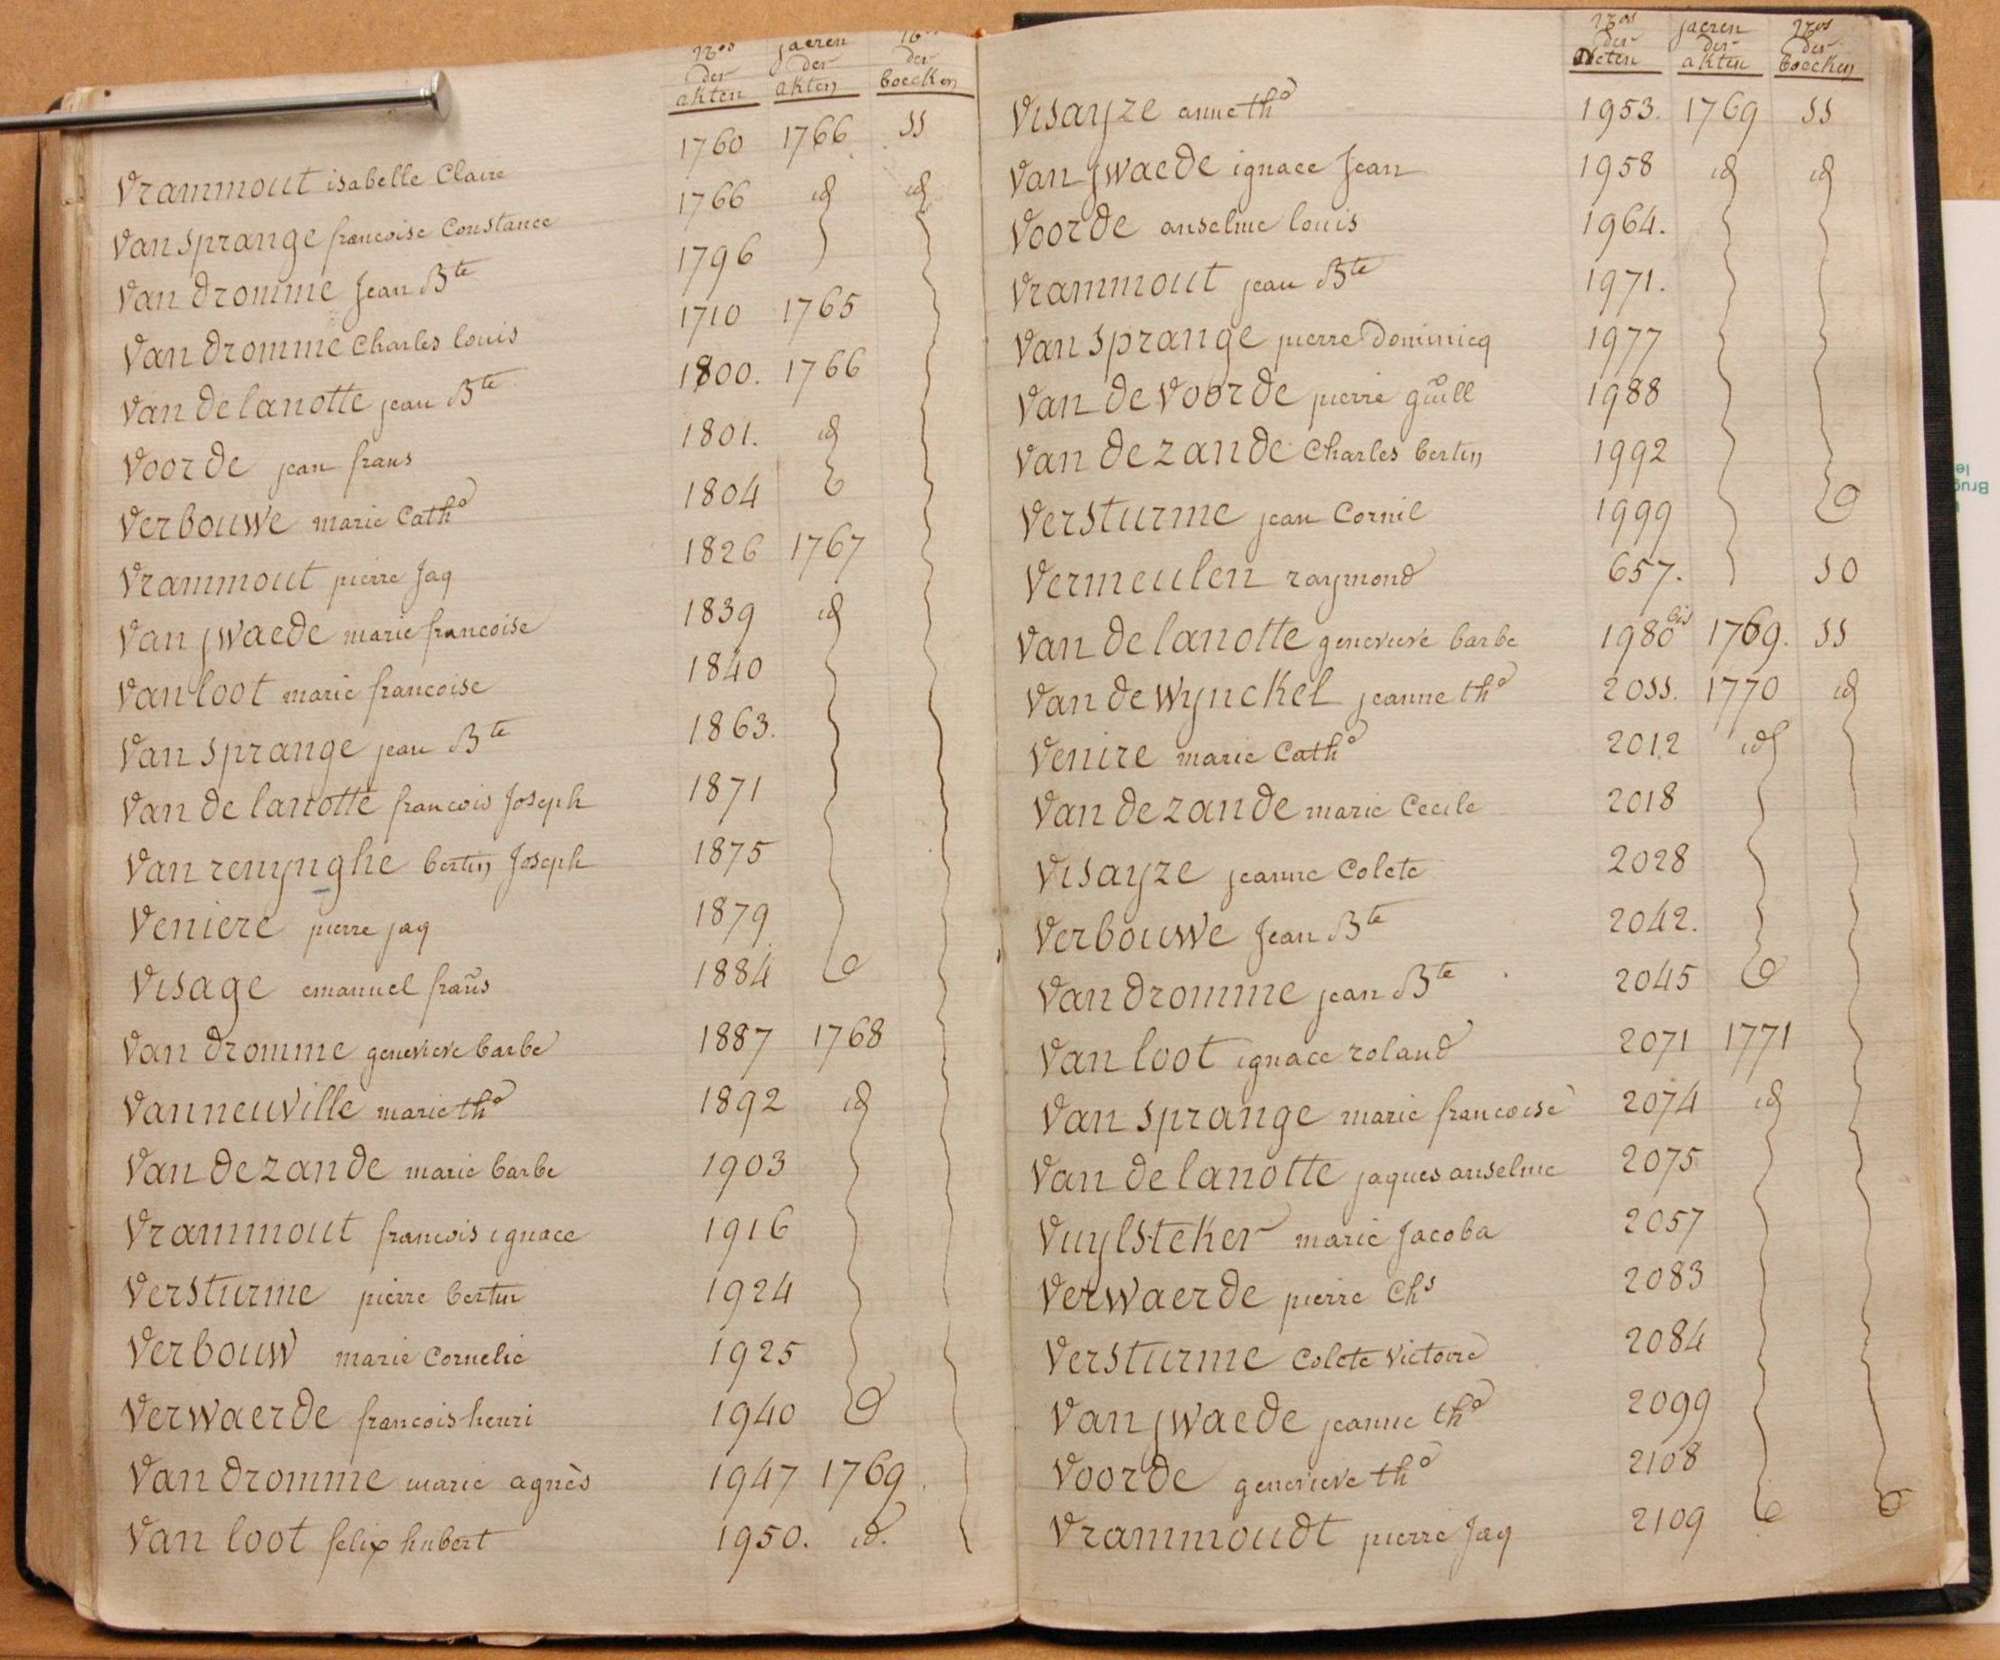 nos der akten jaeren der akten nos der boecken
Vrammout isabelle Claire 1760 1766 SS
Van sprange francoise Constance 1766 id id
Van dromme Jean Bte 1796
Van dromme Charles louis 1710 1765
Van de lanotte jean Bte 1800. 1766
Voorde jean frans 1801. id
Verbouwe marie Catho 1804
Vrammout pierre Jaq 1826 1767
Van jwaede marie francoise 1839 id
Van loot marie francoise 1840
Van sprange jean Bte 1863.
Van de lanotte francois Joseph 1871
Van renynghe bertin Joseph 1875
Veniere pierre jaq 1879
Visage emanuel frans 1884
Van dromme genevieve barbe 1887 1768
Van neuville marie tho 1892 id
Van de zande marie barbe 1903
Vrammout francois ignace 1916
Versturme pierre bertin 1924
Verbouw marie Cornelie 1925
Verwaerde francois henri 1940
Van dromme marie agnès 1947 1769
Van loot felix hubert 1950. id.
nos der acten jaeren der akten nos der boecken
Visayze anne tho 1953. 1769 SS
Van jwaede ignace Jean 1958 id id
Voorde anselme louis 1964.
Vrammout jean Bte 1971.
Van sprange pierre Dominicq 1977
Van de Voorde pierre guill 1988
Van de zande Charles bertin 1992
Versturme jean Cornil 1999
Vermeulen raymond 657. SO
Van de lanotte genevieve barbe 1980 bis 1769. SS
Van de wynckel jeanne tho 20SS. 1770 id
Venire marie Catho 2012 id
Van de zande marie Cecile 2018
Visayze jeanne Colete 2028
Verbouwe Jean Bte 2042.
Van dromme jean Bte 2045
Van loot ignace roland 2071 1771
Van sprange marie francoise 2074 id
Van de lanotte jaques anselme 2075
Vuylsteker marie Jacoba 2057
Verwaerde pierre Chs 2083
Versturme Colete Victoire 2084
Van jwaede jeanne tho 2099
Voorde genevieve tho 2108
Vrammoudt pierre Jaq 2109